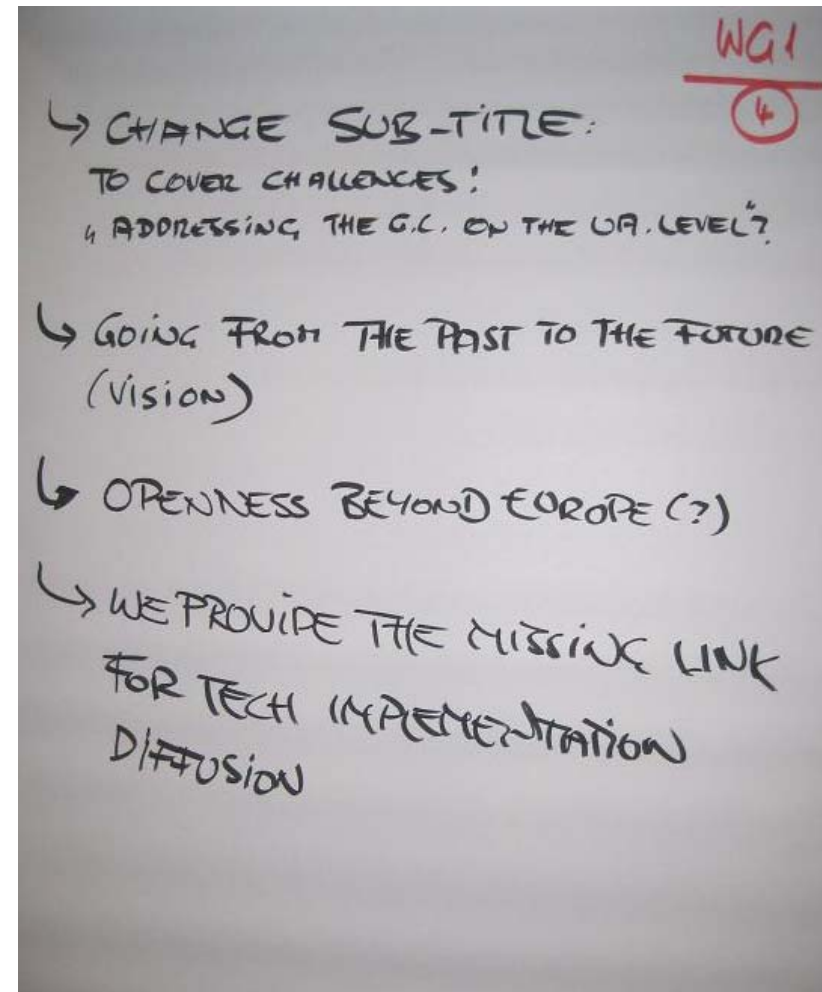 WG1
4
↳ CHANGE SUB-TITLE:
TO COVER CHALLENGES!
" ADDRESSING THE G.C. ON THE UA. LEVEL"?
↳ GOING FROM THE PAST TO THE FUTURE
(VISION)
↳ OPENNESS BEYOND EUROPE (?)
↳ WE PROVIDE THE MISSING LINK
FOR TECH IMPLEMENTATION
DIFFUSION